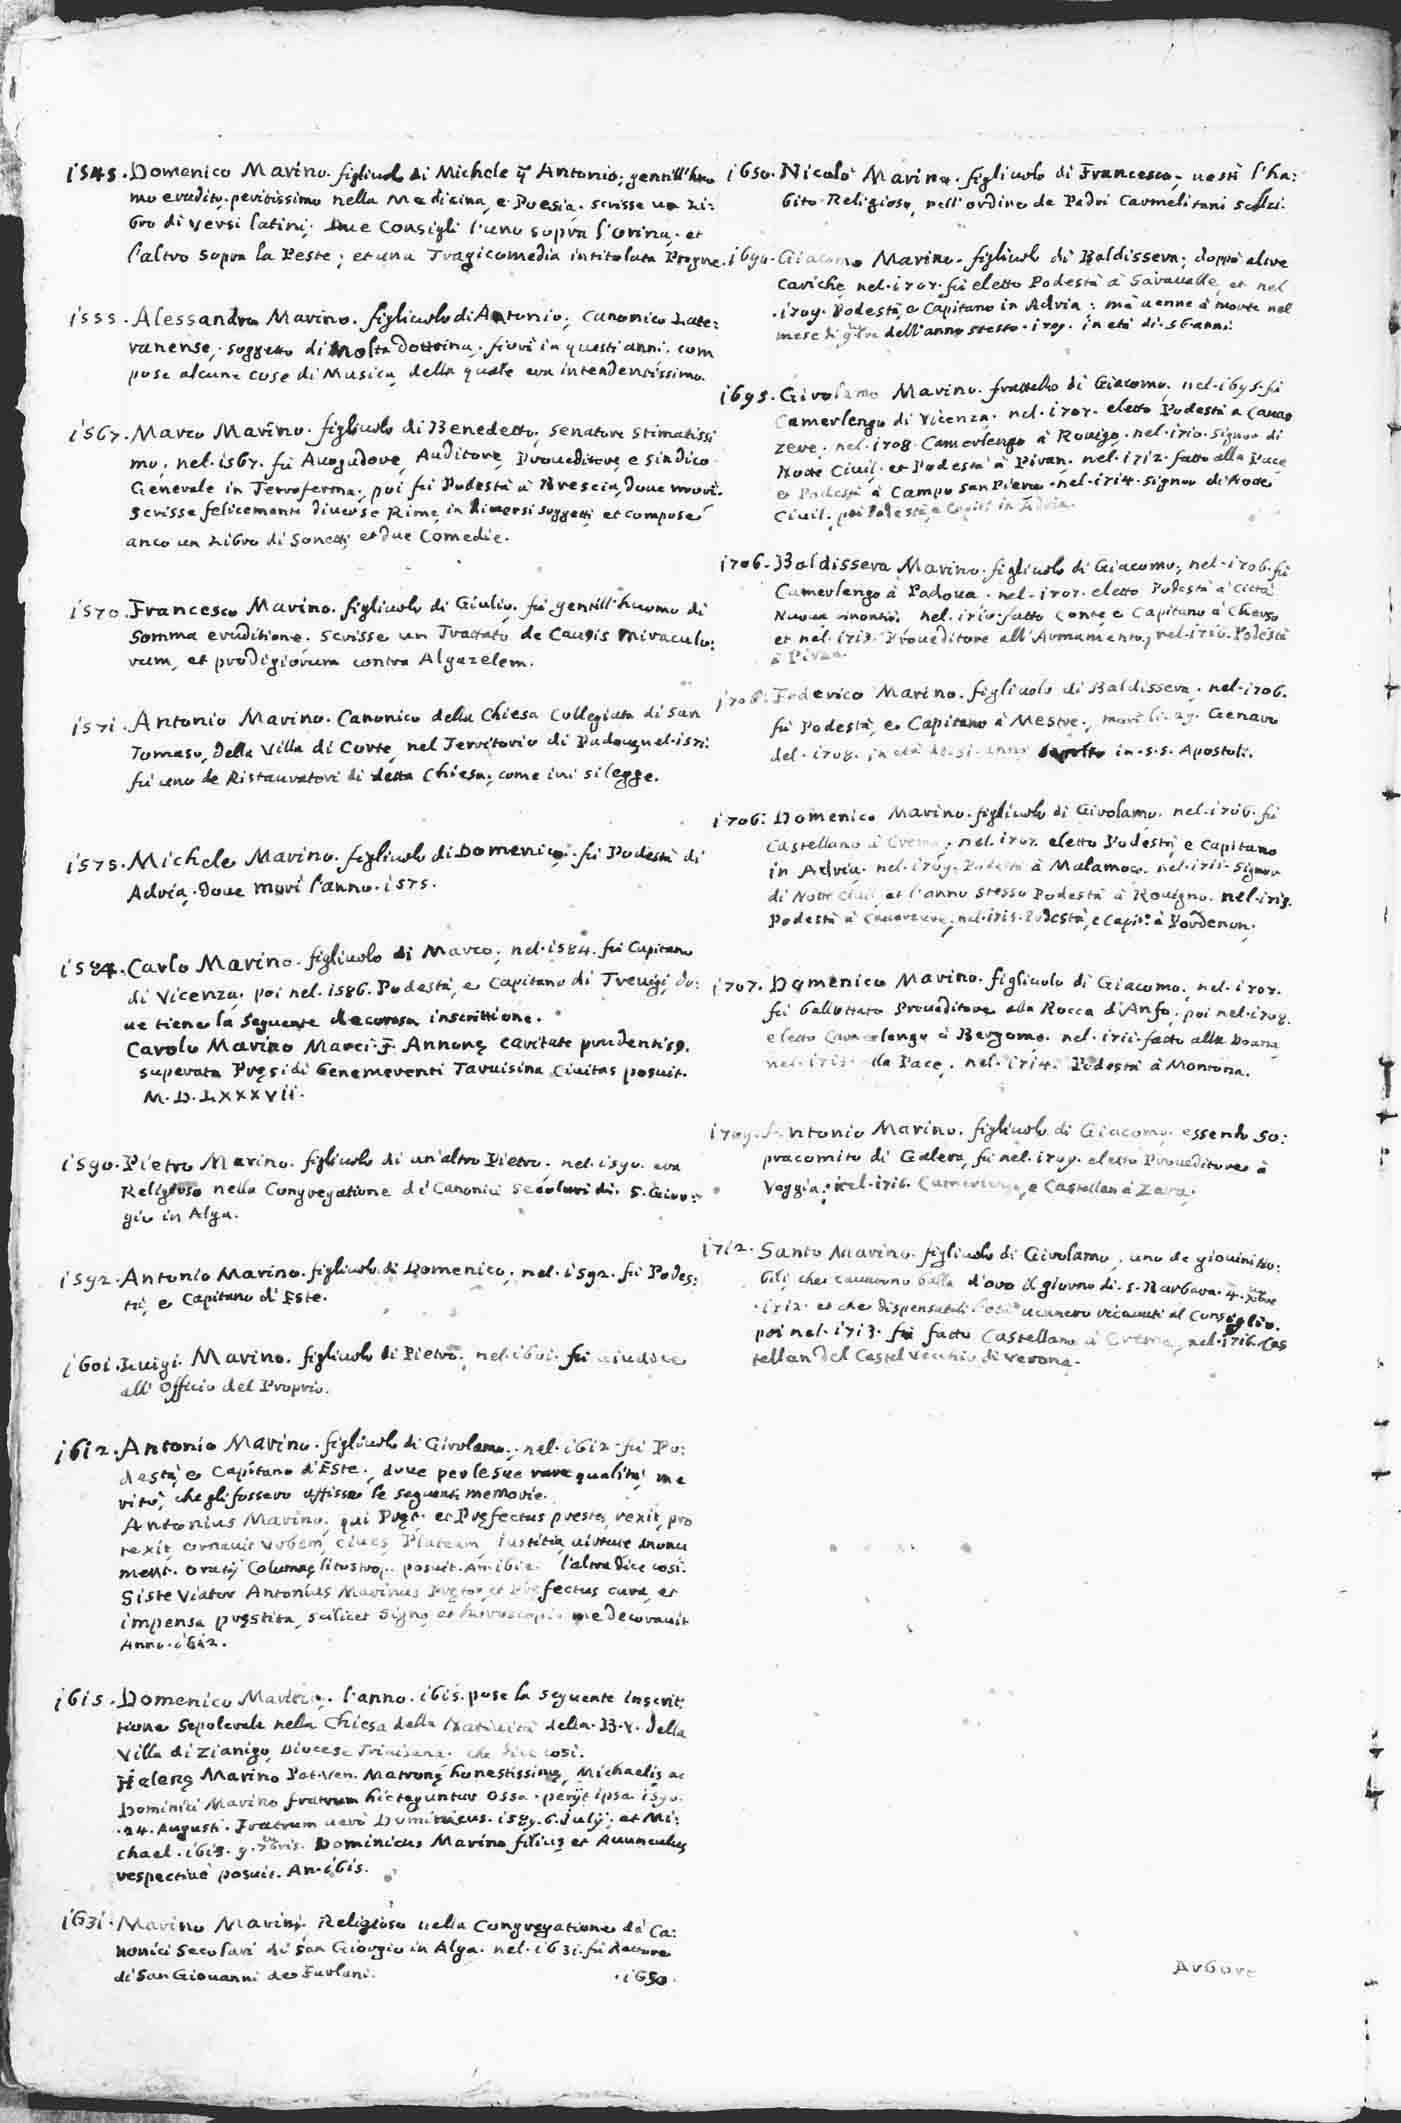 1545. Domenico Marino. figliuol di Michele q. Antonio, gentill'huo
mo erudito, peritissimo nella Medicina, e Poesia. scrisse un Li:
bro di versi latini; Due Consigli l'uno sopra l'orina, et
l'altro sopra la Peste; et una Tragicomedia intitolata Progne.
1555. Alessandro Marino. figliuolo di Antonio, Canonico Late:
ranense, soggetto di molta dottrina, fiorì in questi anni. com
pose alcune cose di Musica, della quale era intendentissimo.
1567. Marco Marino. figliuolo di Benedetto, senatore stimatissi
mo, nel 1567. fù Auogadore, Auditore, Proueditore, e sindico
Generale in Terraferma, poi fù Podestà à Brescia, doue morì.
scrisse felicemente diuerse Rime, in diuersi soggetti, et compose
anco un Libro di Sonetti, et due Comedie.
1570. Francesco Marino. figliuolo di Giulio, fù gentill'huomo di
somma eruditione. scrisse un Trattato, de Causis miraculo:
rum, et prodigiorum contra Algazelem.
1571. Antonio Marino. Canonico della Chiesa Collegiata di San
Tomaso, della Villa di Corte, nel Territorio di Padoua, nel 1571.
fù uno de Ristauratori di detta Chiesa, come iui si legge.
1575. Michele Marino. figliuolo di Domenico, fù Podestà di
Adria, doue morì l'anno 1575.
1584. Carlo Marino. figliuolo di Marco, nel 1584. fù Capitano
di Vicenza, poi nel 1586. Podestà, e Capitano di Treuigi, do:
ue tiene la seguente decorosa inscrittione.
Carolo Marino Marci F. Annonę caritate prudentiss.
superata Pręsidi benemerenti Taruisina Ciuitas posuit.
M. D. LXXXVII.
1590. Pietro Marino. figliuolo di un'altro Pietro. nel 1590. era
Religioso nella Congregatione di Canonici secolari di S. Gior:
gio in Alga.
1592. Antonio Marino. figliuolo di Domenico, nel 1592. fù Podes:
tà, e Capitano d'Este.
1601. Luigi Marino. figliuolo di Pietro, nel 1601. fù giudice
all'Officio del Proprio.
1612. Antonio Marino. figliuolo di Girolamo, nel 1612. fù Po:
destà, e Capitano d'Este, doue per le sue rare qualità, me
ritò, che gli fossero affisse le seguenti memorie.
Antonius Marino, qui Pręt. et Pręfectus prestes, rexit, pro
texit, ornauit Vrbem, ciues, Plateam, iustitia, uirtute
ment. Columnę posuit. An. 1612. l'altra dice così.
Siste Viator Antonius Marinus Prętor, et Pręfectus cura, et
impensa pręstita, scilicet signo, et horoscopio me decorauit
Anno 1612.
1615. Domenico Marino, l'anno 1615. pose la seguente inscrit:
tione sepolcrale nella Chiesa della Natiuità della B. V. della
Villa di Zianigo, Diocese Triuisana. che dice così.
Helenę Marino Pat. Ven. Matronę honestissimę, Michaelis, ac
Dominici Marino fratrum hic teguntur ossa. perijt ipsa 1590.
24. Augusti. Fratrum uerò Dominicus. 1589. 6. Julij, et Mi:
chael. 1613. 9. Dominicus Marino filius, et Auunculus
respectiuè posuit. An. 1615.
1631. Marino Marini Religioso nella Congregatione dè Ca:
nonici secolari di San Giorgio in Alga. nel 1631. fù Rettore
di San Giouanni de Furlani.
1650.
1650. Nicolò Marino. figliuolo di Francesco, uestì l'ha:
bito Religioso, nell'ordine de Padri Carmelitani scalzi.
1690. Giacomo Marino. figliuolo di Baldissera, doppò altre
cariche, nel 1707. fù eletto Podestà à Saraualle, et nel
1709. Podestà, e Capitano in Adria; mà uenne à morte nel
mese di 9bre dell'anno stesso 1709. in età di 56 anni.
1695. Girolamo Marino. frattello di Giacomo, nel 1695. fù
Camerlengo di Vicenza. nel 1707. eletto Podestà a Cauar
zere. nel 1708. Camerlengo à Rouigo. nel 1710. Signor di
Notte Ciuil, et Podestà à Piran. nel 1712. fatto alla Pace,
e Podestà à Campo San Piero. nel 1714. Signor di Notte
Ciuil. poi Podestà, e Capit. in Adria.
1706. Baldissera Marino. figliuolo di Giacomo, nel 1706. fù
Camerlengo à Padoua. nel 1707. eletto Podestà à Città
Nuoua nel 1710. fatto Conte e Capitano à Cherso
et nel 1713. Proueditore all'Armamento, nel 1716. Podestà
à Piran.
1706. Federico Marino. figliuolo di Baldissera. nel 1706.
fù Podestà, e Capitano à Mestre, morì li 29. Genaro
del 1708. in età di 51 anni sepolto in S. S. Apostoli.
1706. Domenico Marino. figliuolo di Girolamo. nel 1706. fù
Castellano à Crema, nel 1707. eletto Podestà, e Capitano
in Adria. nel 1709. Podestà à Malamoco. nel 1711. Signor
di Notte Ciuil, et l'anno stesso Podestà à Rouigno. nel 1713.
Podestà à Cauarzere, nel 1715. Podestà, e Capit.º à Pordenon.
1707. Domenico Marino. figliuolo di Giacomo, nel 1707.
fù ballottato Proueditore alla Rocca d'Anfo, poi nel 1709.
eletto Camerlengo à Bergomo. nel 1711. fatto alla Doana,
nel 1713. alla Pace, nel 1714. Podestà à Montona.
1709. Antonio Marino. figliuolo di Giacomo, essendo So:
pracomito di Galera, fù nel 1709. eletto Proueditore à
Veggia, nel 1716. Camerlengo, e Castellan à Zara.
1712. Santo Marino. figliuolo di Girolamo, uno de giouini No:
bili, che cauarono balla d'oro il giorno di S. Barbara. 4. Xbre
1712. et che dispensatoli l'età ueniuano riceuuti al Consiglio.
poi nel 1713. fù fatto Castellano à Crema, nel 1716. Cas
tellan del Castel Vecchio di Verona.
Arbore